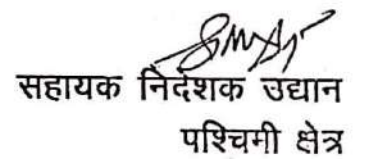 सहायक निदेशक उद्यान
पश्चिमी क्षेत्र